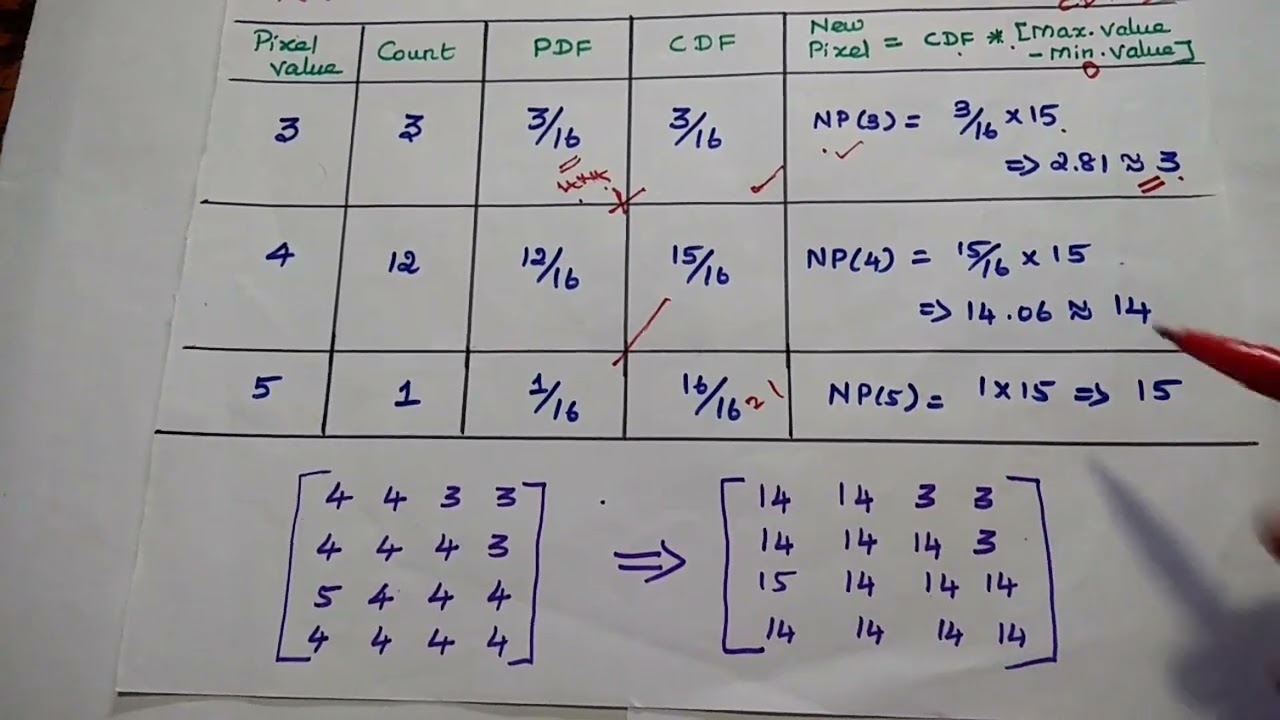 Pixel Value | Count | PDF | CDF | New Pixel = CDF * [max. value - min. value]
0
3 | 3 | 3/16 | 3/16 | NP(3) = 3/16 × 15
⇒ 2.81 ≈ 3
4 | 12 | 12/16 | 15/16 | NP(4) = 15/16 × 15
⇒ 14.06 ≈ 14
5 | 1 | 1/16 | 16/16 = 1 | NP(5) = 1 × 15 ⇒ 15
[4 4 3 3] ⇒ [14 14 3 3]
[4 4 4 3] [14 14 14 3]
[5 4 4 4] [15 14 14 14]
[4 4 4 4] [14 14 14 14]